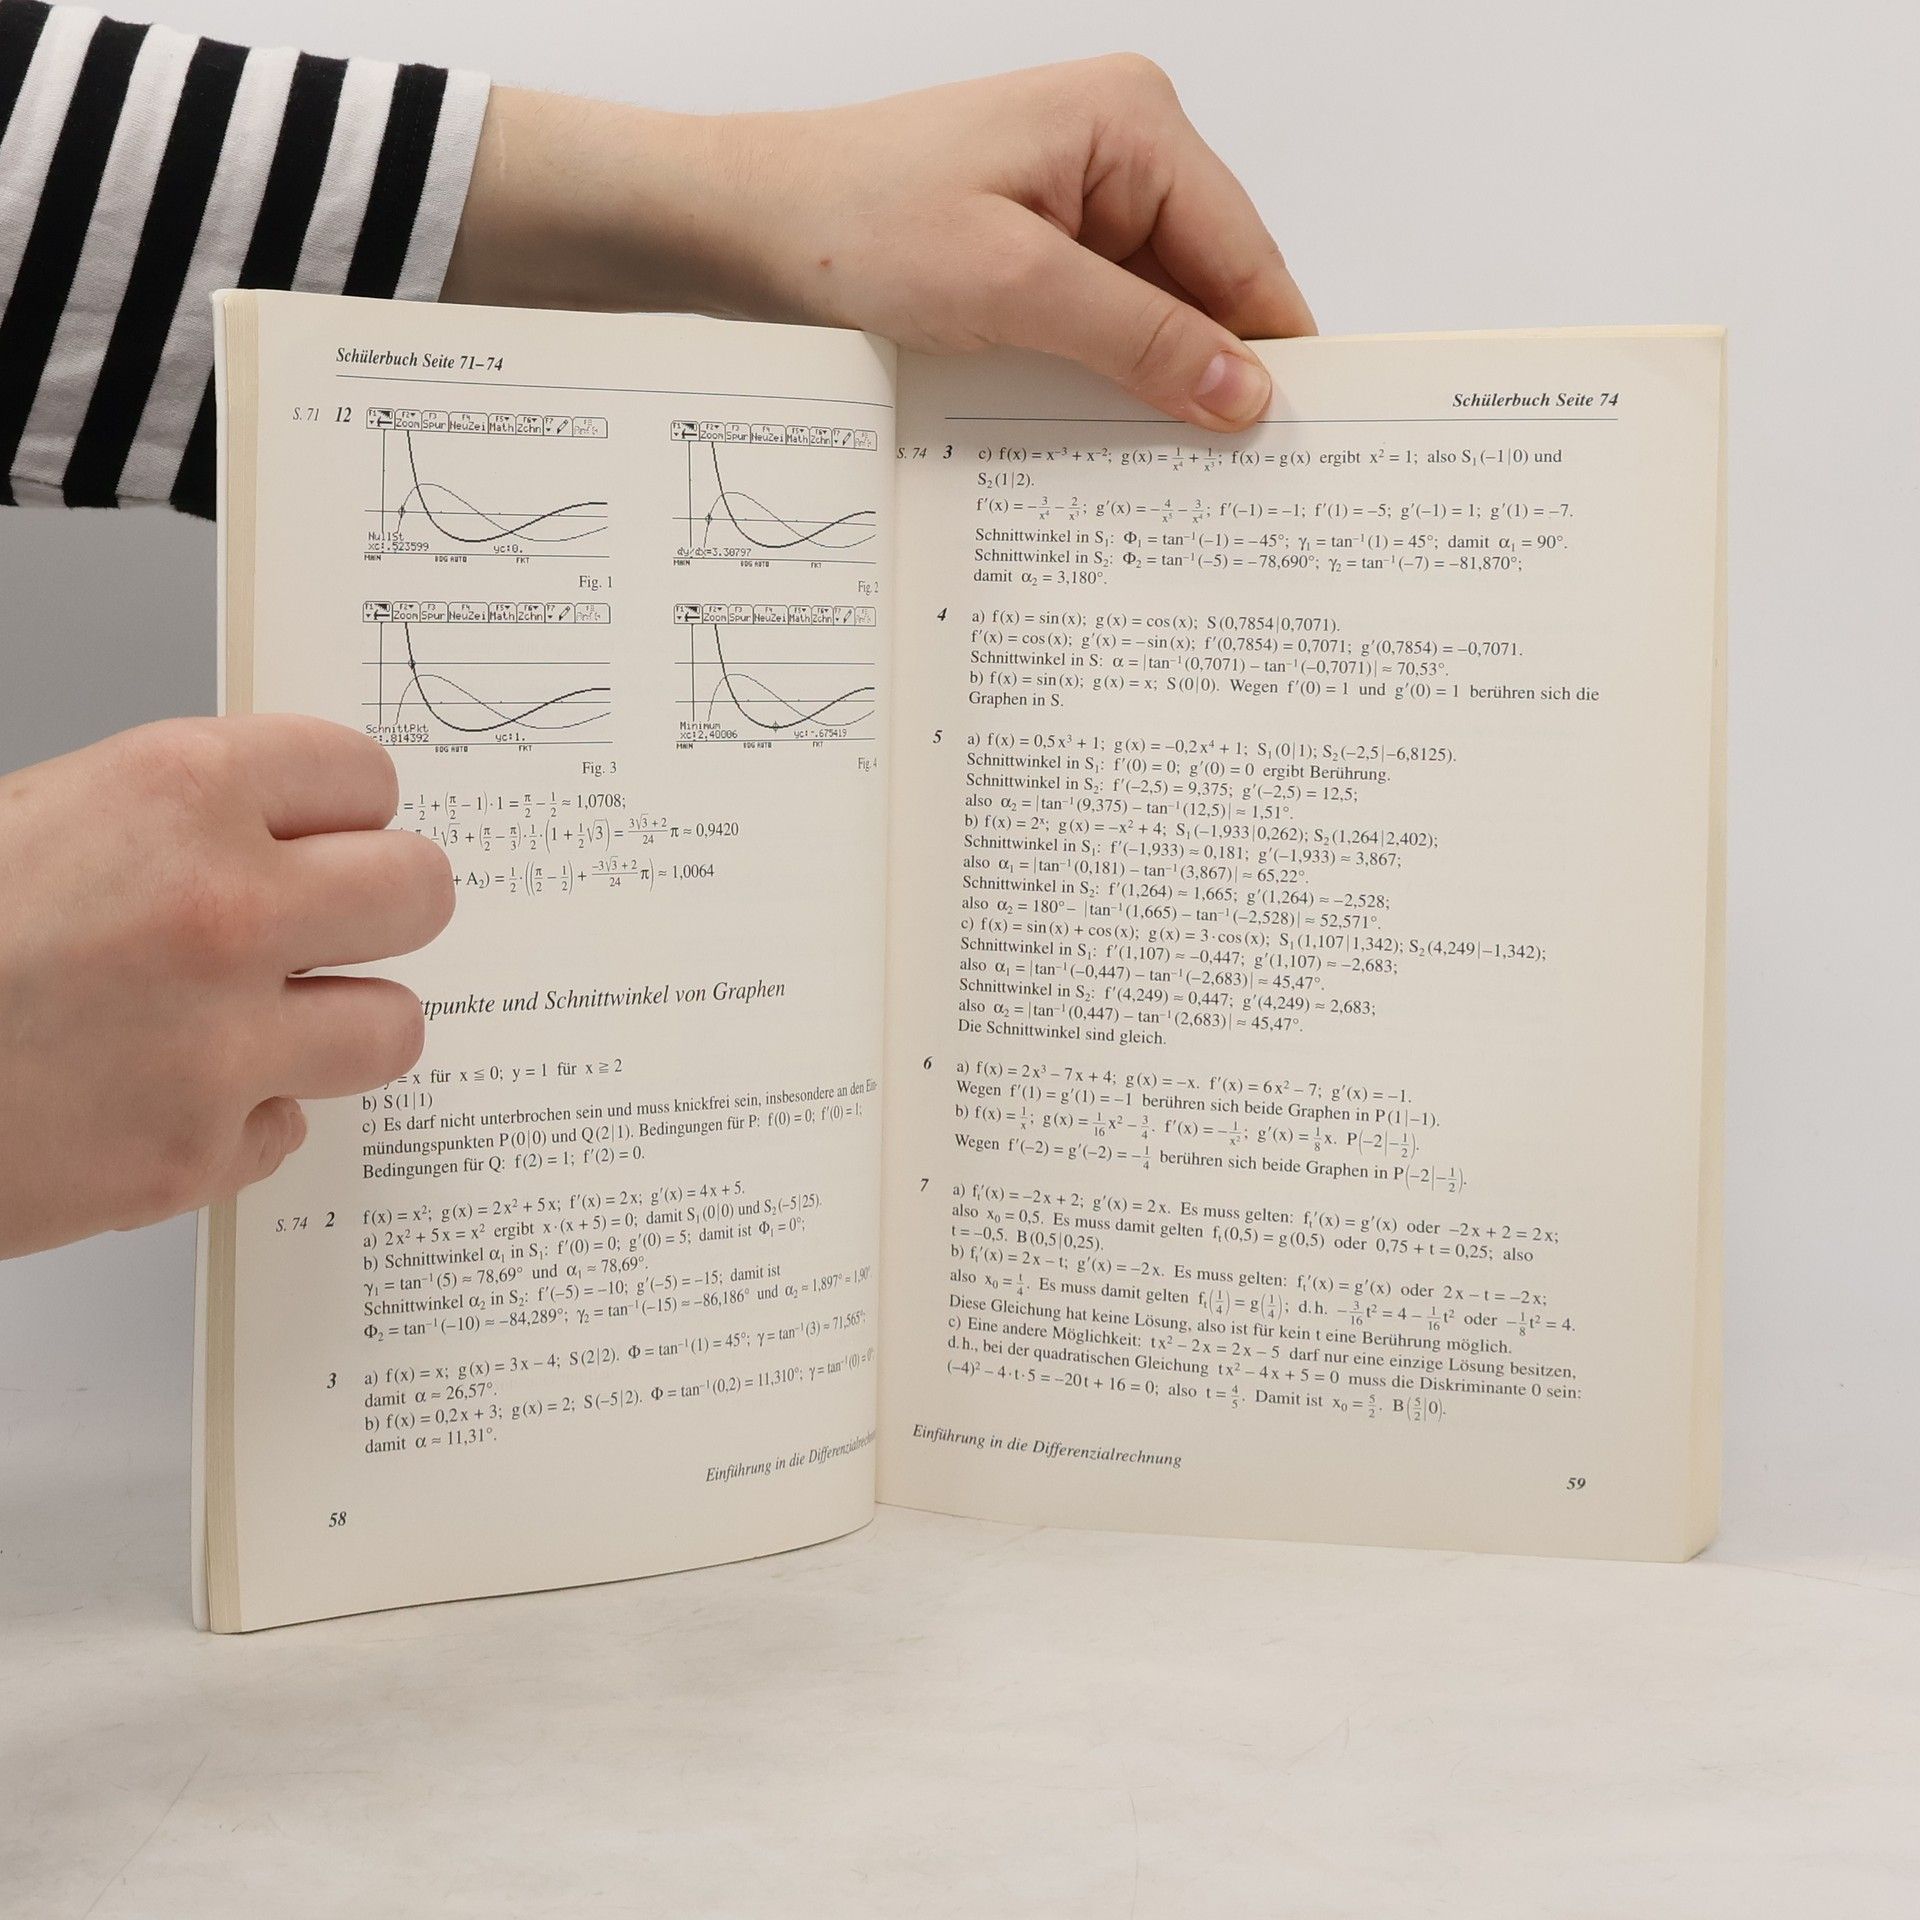 Schülerbuch Seite 71–74
S. 71 12
F1 F2 F3 F4 F5 F6 F7
Zoom Spur NeuZei Math Zchn
NullSt
xc:.523599 yc:0.
MAIN BOG AUTO FKT
Fig. 1
Zoom Spur NeuZei Math Zchn
dy/dx=3.30797
MAIN BOG AUTO FKT
Fig. 2
Zoom Spur NeuZei Math Zchn
SchnittPkt
:.814392 yc:1.
BOG AUTO FKT
Fig. 3
Zoom Spur NeuZei Math Zchn
Minimum
xc:2.40006 yc:-.675419
MAIN BOG AUTO FKT
Fig. 4
= 1/2 + (π/2 − 1)·1 = π/2 − 1/2 ≈ 1,0708;
1/2√3 + (π/2 − π/3)·1/2·(1 + 1/2√3) = (3√3 + 2)/24 π ≈ 0,9420
+ A₂) = 1/2·((π/2 − 1/2) + (−3√3 + 2)/24 π) ≈ 1,0064
tpunkte und Schnittwinkel von Graphen
= x für x ≦ 0; y = 1 für x ≧ 2
b) S(1|1)
c) Es darf nicht unterbrochen sein und muss knickfrei sein, insbesondere an den Ein-
mündungspunkten P(0|0) und Q(2|1). Bedingungen für P: f(0) = 0; f′(0) = 1;
Bedingungen für Q: f(2) = 1; f′(2) = 0.
S. 74 2 f(x) = x²; g(x) = 2x² + 5x; f′(x) = 2x; g′(x) = 4x + 5.
a) 2x² + 5x = x² ergibt x·(x + 5) = 0; damit S₁(0|0) und S₂(−5|25).
b) Schnittwinkel α₁ in S₁: f′(0) = 0; g′(0) = 5; damit ist Φ₁ = 0°;
γ₁ = tan⁻¹(5) ≈ 78,69° und α₁ ≈ 78,69°.
Schnittwinkel α₂ in S₂: f′(−5) = −10; g′(−5) = −15; damit ist
Φ₂ = tan⁻¹(−10) ≈ −84,289°; γ₂ = tan⁻¹(−15) ≈ −86,186° und α₂ ≈ 1,897° ≈ 1,90°
3 a) f(x) = x; g(x) = 3x − 4; S(2|2). Φ = tan⁻¹(1) = 45°; γ = tan⁻¹(3) ≈ 71,565°;
damit α ≈ 26,57°.
b) f(x) = 0,2x + 3; g(x) = 2; S(−5|2). Φ = tan⁻¹(0,2) = 11,310°; γ = tan⁻¹(0) = 0°;
damit α ≈ 11,31°.
Einführung in die Differenzialrechnung
58
Schülerbuch Seite 74
S. 74 3 c) f(x) = x⁻³ + x⁻²; g(x) = 1/x⁴ + 1/x³; f(x) = g(x) ergibt x² = 1; also S₁(−1|0) und
S₂(1|2).
f′(x) = −3/x⁴ − 2/x³; g′(x) = −4/x⁵ − 3/x⁴; f′(−1) = −1; f′(1) = −5; g′(−1) = 1; g′(1) = −7.
Schnittwinkel in S₁: Φ₁ = tan⁻¹(−1) = −45°; γ₁ = tan⁻¹(1) = 45°; damit α₁ = 90°.
Schnittwinkel in S₂: Φ₂ = tan⁻¹(−5) = −78,690°; γ₂ = tan⁻¹(−7) = −81,870°;
damit α₂ = 3,180°.
4 a) f(x) = sin(x); g(x) = cos(x); S(0,7854|0,7071).
f′(x) = cos(x); g′(x) = −sin(x); f′(0,7854) = 0,7071; g′(0,7854) = −0,7071.
Schnittwinkel in S: α = |tan⁻¹(0,7071) − tan⁻¹(−0,7071)| ≈ 70,53°.
b) f(x) = sin(x); g(x) = x; S(0|0). Wegen f′(0) = 1 und g′(0) = 1 berühren sich die
Graphen in S.
5 a) f(x) = 0,5x³ + 1; g(x) = −0,2x⁴ + 1; S₁(0|1); S₂(−2,5|−6,8125).
Schnittwinkel in S₁: f′(0) = 0; g′(0) = 0 ergibt Berührung.
Schnittwinkel in S₂: f′(−2,5) = 9,375; g′(−2,5) = 12,5;
also α₂ = |tan⁻¹(9,375) − tan⁻¹(12,5)| ≈ 1,51°.
b) f(x) = 2ˣ; g(x) = −x² + 4; S₁(−1,933|0,262); S₂(1,264|2,402);
Schnittwinkel in S₁: f′(−1,933) ≈ 0,181; g′(−1,933) ≈ 3,867;
also α₁ = |tan⁻¹(0,181) − tan⁻¹(3,867)| ≈ 65,22°.
Schnittwinkel in S₂: f′(1,264) ≈ 1,665; g′(1,264) ≈ −2,528;
also α₂ = 180° − |tan⁻¹(1,665) − tan⁻¹(−2,528)| ≈ 52,571°.
c) f(x) = sin(x) + cos(x); g(x) = 3·cos(x); S₁(1,107|1,342); S₂(4,249|−1,342);
Schnittwinkel in S₁: f′(1,107) ≈ −0,447; g′(1,107) ≈ −2,683;
also α₁ = |tan⁻¹(−0,447) − tan⁻¹(−2,683)| ≈ 45,47°.
Schnittwinkel in S₂: f′(4,249) ≈ 0,447; g′(4,249) ≈ 2,683;
also α₂ = |tan⁻¹(0,447) − tan⁻¹(2,683)| ≈ 45,47°.
Die Schnittwinkel sind gleich.
6 a) f(x) = 2x³ − 7x + 4; g(x) = −x. f′(x) = 6x² − 7; g′(x) = −1.
Wegen f′(1) = g′(1) = −1 berühren sich beide Graphen in P(1|−1).
b) f(x) = 1/x; g(x) = 1/16 x² − 3/4. f′(x) = −1/x²; g′(x) = 1/8 x. P(−2|−1/2).
Wegen f′(−2) = g′(−2) = −1/4 berühren sich beide Graphen in P(−2|−1/2).
7 a) fₜ′(x) = −2x + 2; g′(x) = 2x. Es muss gelten: fₜ′(x) = g′(x) oder −2x + 2 = 2x;
also x₀ = 0,5. Es muss damit gelten fₜ(0,5) = g(0,5) oder 0,75 + t = 0,25; also
t = −0,5. B(0,5|0,25).
b) fₜ′(x) = 2x − t; g′(x) = −2x. Es muss gelten: fₜ′(x) = g′(x) oder 2x − t = −2x;
also x₀ = t/4. Es muss damit gelten fₜ(t/4) = g(t/4); d.h. −3/16 t² = 4 − 1/16 t² oder −1/8 t² = 4.
Diese Gleichung hat keine Lösung, also ist für kein t eine Berührung möglich.
c) Eine andere Möglichkeit: tx² − 2x = 2x − 5 darf nur eine einzige Lösung besitzen,
d.h., bei der quadratischen Gleichung tx² − 4x + 5 = 0 muss die Diskriminante 0 sein:
(−4)² − 4·t·5 = −20t + 16 = 0; also t = 4/5. Damit ist x₀ = 5/2. B(5/2|0).
Einführung in die Differenzialrechnung
59